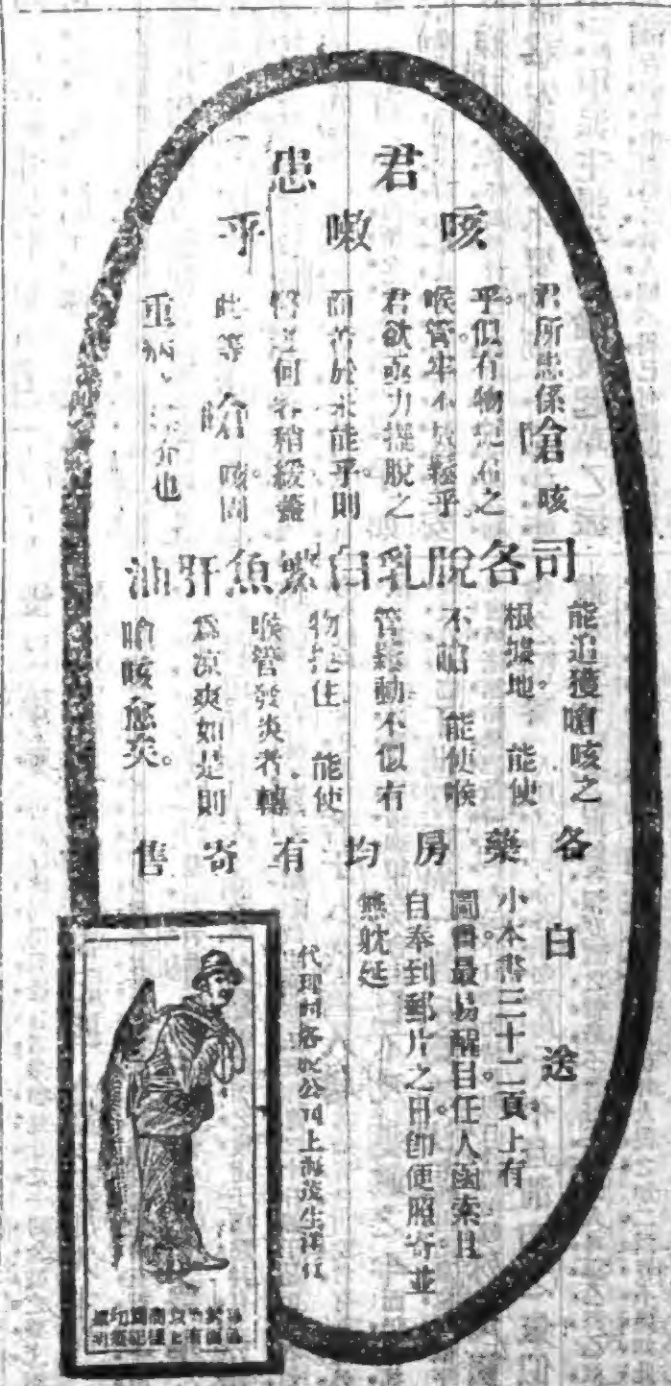 君患
咳嗽乎
君所患係嗆咳
乎似有物之
喉管牢不放鬆乎
君欲亟力擺脫之
而苦於未能乎則
何容稍緩蓋
此等嗆咳固
重病也
司各脫乳白鰵魚肝油
能追獲嗆咳之
根據地。能使
不嗆 能使喉
管鬆動不似有
物拴住 能使
喉管發炎者轉
為凉爽如是則
嗆咳愈矣。
各藥房均有寄售
白送
小本書三十二頁上有
圖畫最易醒目任人函索且
自奉到郵片之日即便照寄並
無躭延
代理司各脫公司上海茂生洋行